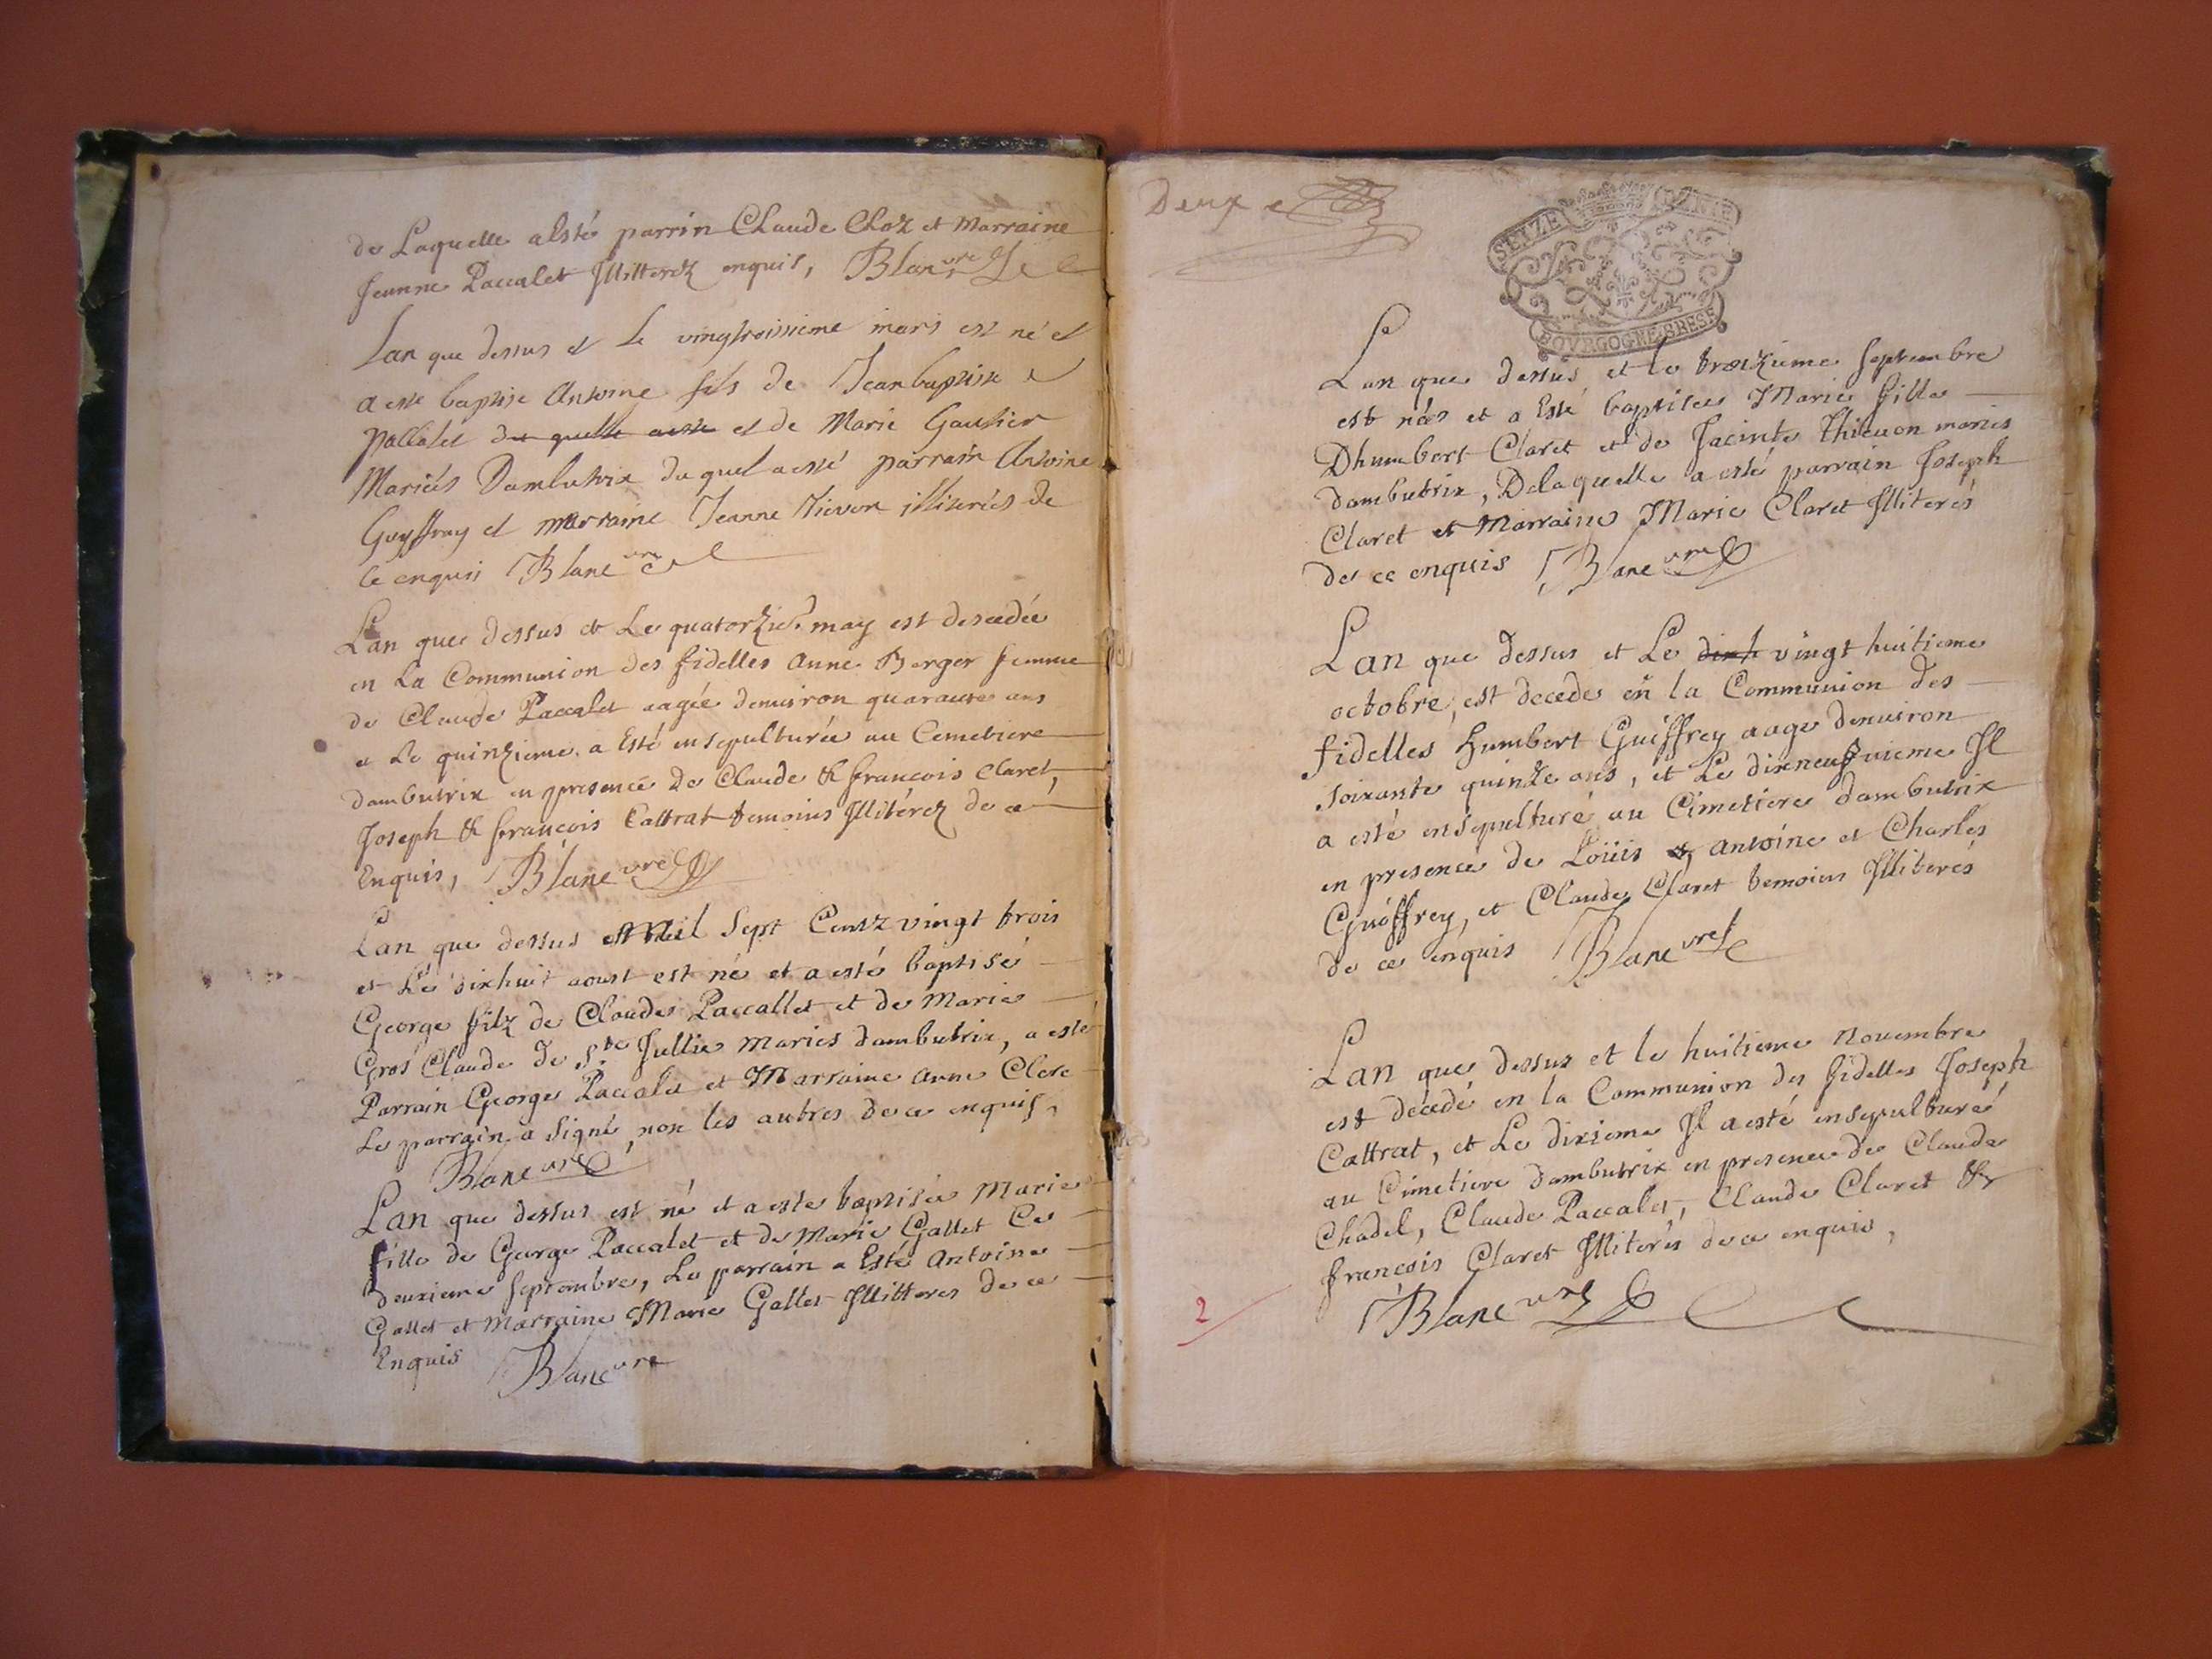 de Laquelle a Esté parrin Claude Cloz et Marraine
Jeanne Paccalet Illitterez enquis, Blanc vre
Lan que dessus et le vingtroissieme mars est né et
a este baptise Antoine fils de Jean baptiste
pallalet du quelle a este et de Marie Gautier
Mariés Dambutrix du quel a esté parrain Antoine
Guyffray et marraine Jeanne Tievon illiterés de
ce enquis Blanc vre
Lan que dessus et Le quatorzie. may est decedée
en La Communion des fidelles Anne Berger femme
de Claude Paccalet aagée denuiron quarante ans
e Le quinzieme a Esté ensepulturée au Cemetiere
dambutrix en presence de Claude & francois Claret,
Joseph & francois Cattrat temoins Illitérez de ce
Enquis, Blanc vre
Lan que dessus Mil Sept Centz vingt trois
et Le dixhuit aoust est né et a esté baptisé
George filz de Claude Paccallet et de Marie
Gros Claude de Ste Jullie mariés dambutrix, a este
Parrain George Paccalet et Marraine Anne Clerc
Le parrain a signé, non les autres de ce enquis,
Blanc vre
Lan que dessus est né et a este baptisée Marie
fille de George Paccalet et de Marie Gallet Ce
deuxieme septembre, Le parrain a Esté Antoine
Gallet et Marraine Marie Gallet Illitteres de ce
Enquis Blanc vre
Deux
SEIZE DENIE
BOURGOGNE BRESE
Lan que dessus et le treizieme septembre
est née et a Esté baptisée Marie fille
Dhumbert Claret et de Jacinte Thieuon mariés
dambutrix, Delaquelle a esté parrain Joseph
Claret et Marraine Marie Claret Illiterés
de ce enquis Blanc vre
Lan que dessus et Le dixh vingt huitieme
octobre, est decedes en la Communion des
fidelles humbert Guiffrey aage denuiron
soixante quinze ans, et Le dixneufuieme Il
a esté ensepulturé au Cimetiere dambutrix
en presence de Loüis & antoine et Charles
Guiffrey, et Claude Claret temoins Illiterés
de ce enquis Blanc vre
Lan que dessus et le huitieme Nouembre
est décedé en la Communion des fidelles Joseph
Cattrat, et Le dixieme Il a esté ensepulturé
au Cimetiere dambutrix en presence de Claude
Chadel, Claude Paccalet, Claude Claret &
francois Claret Illiterés de ce enquis,
Blanc vre
2